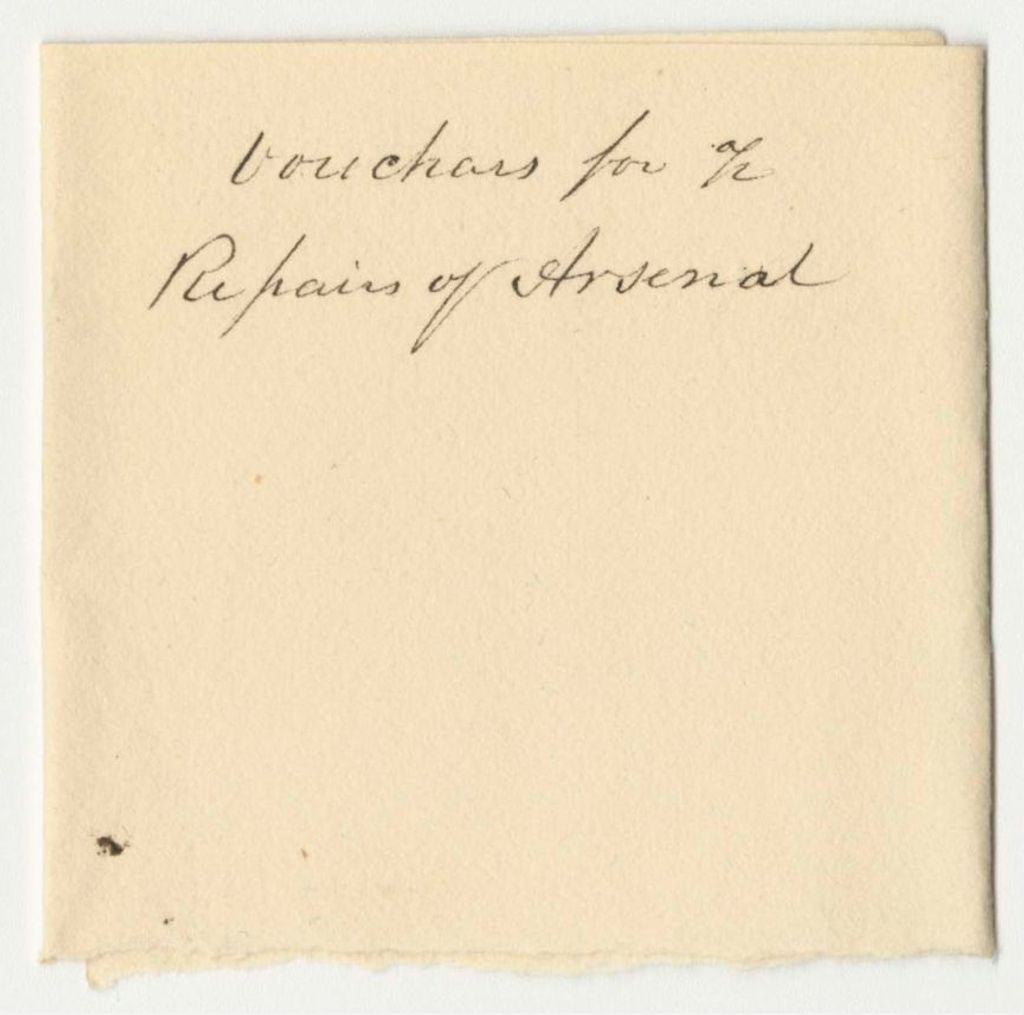 Vouchars for
Repairs of Arsenal